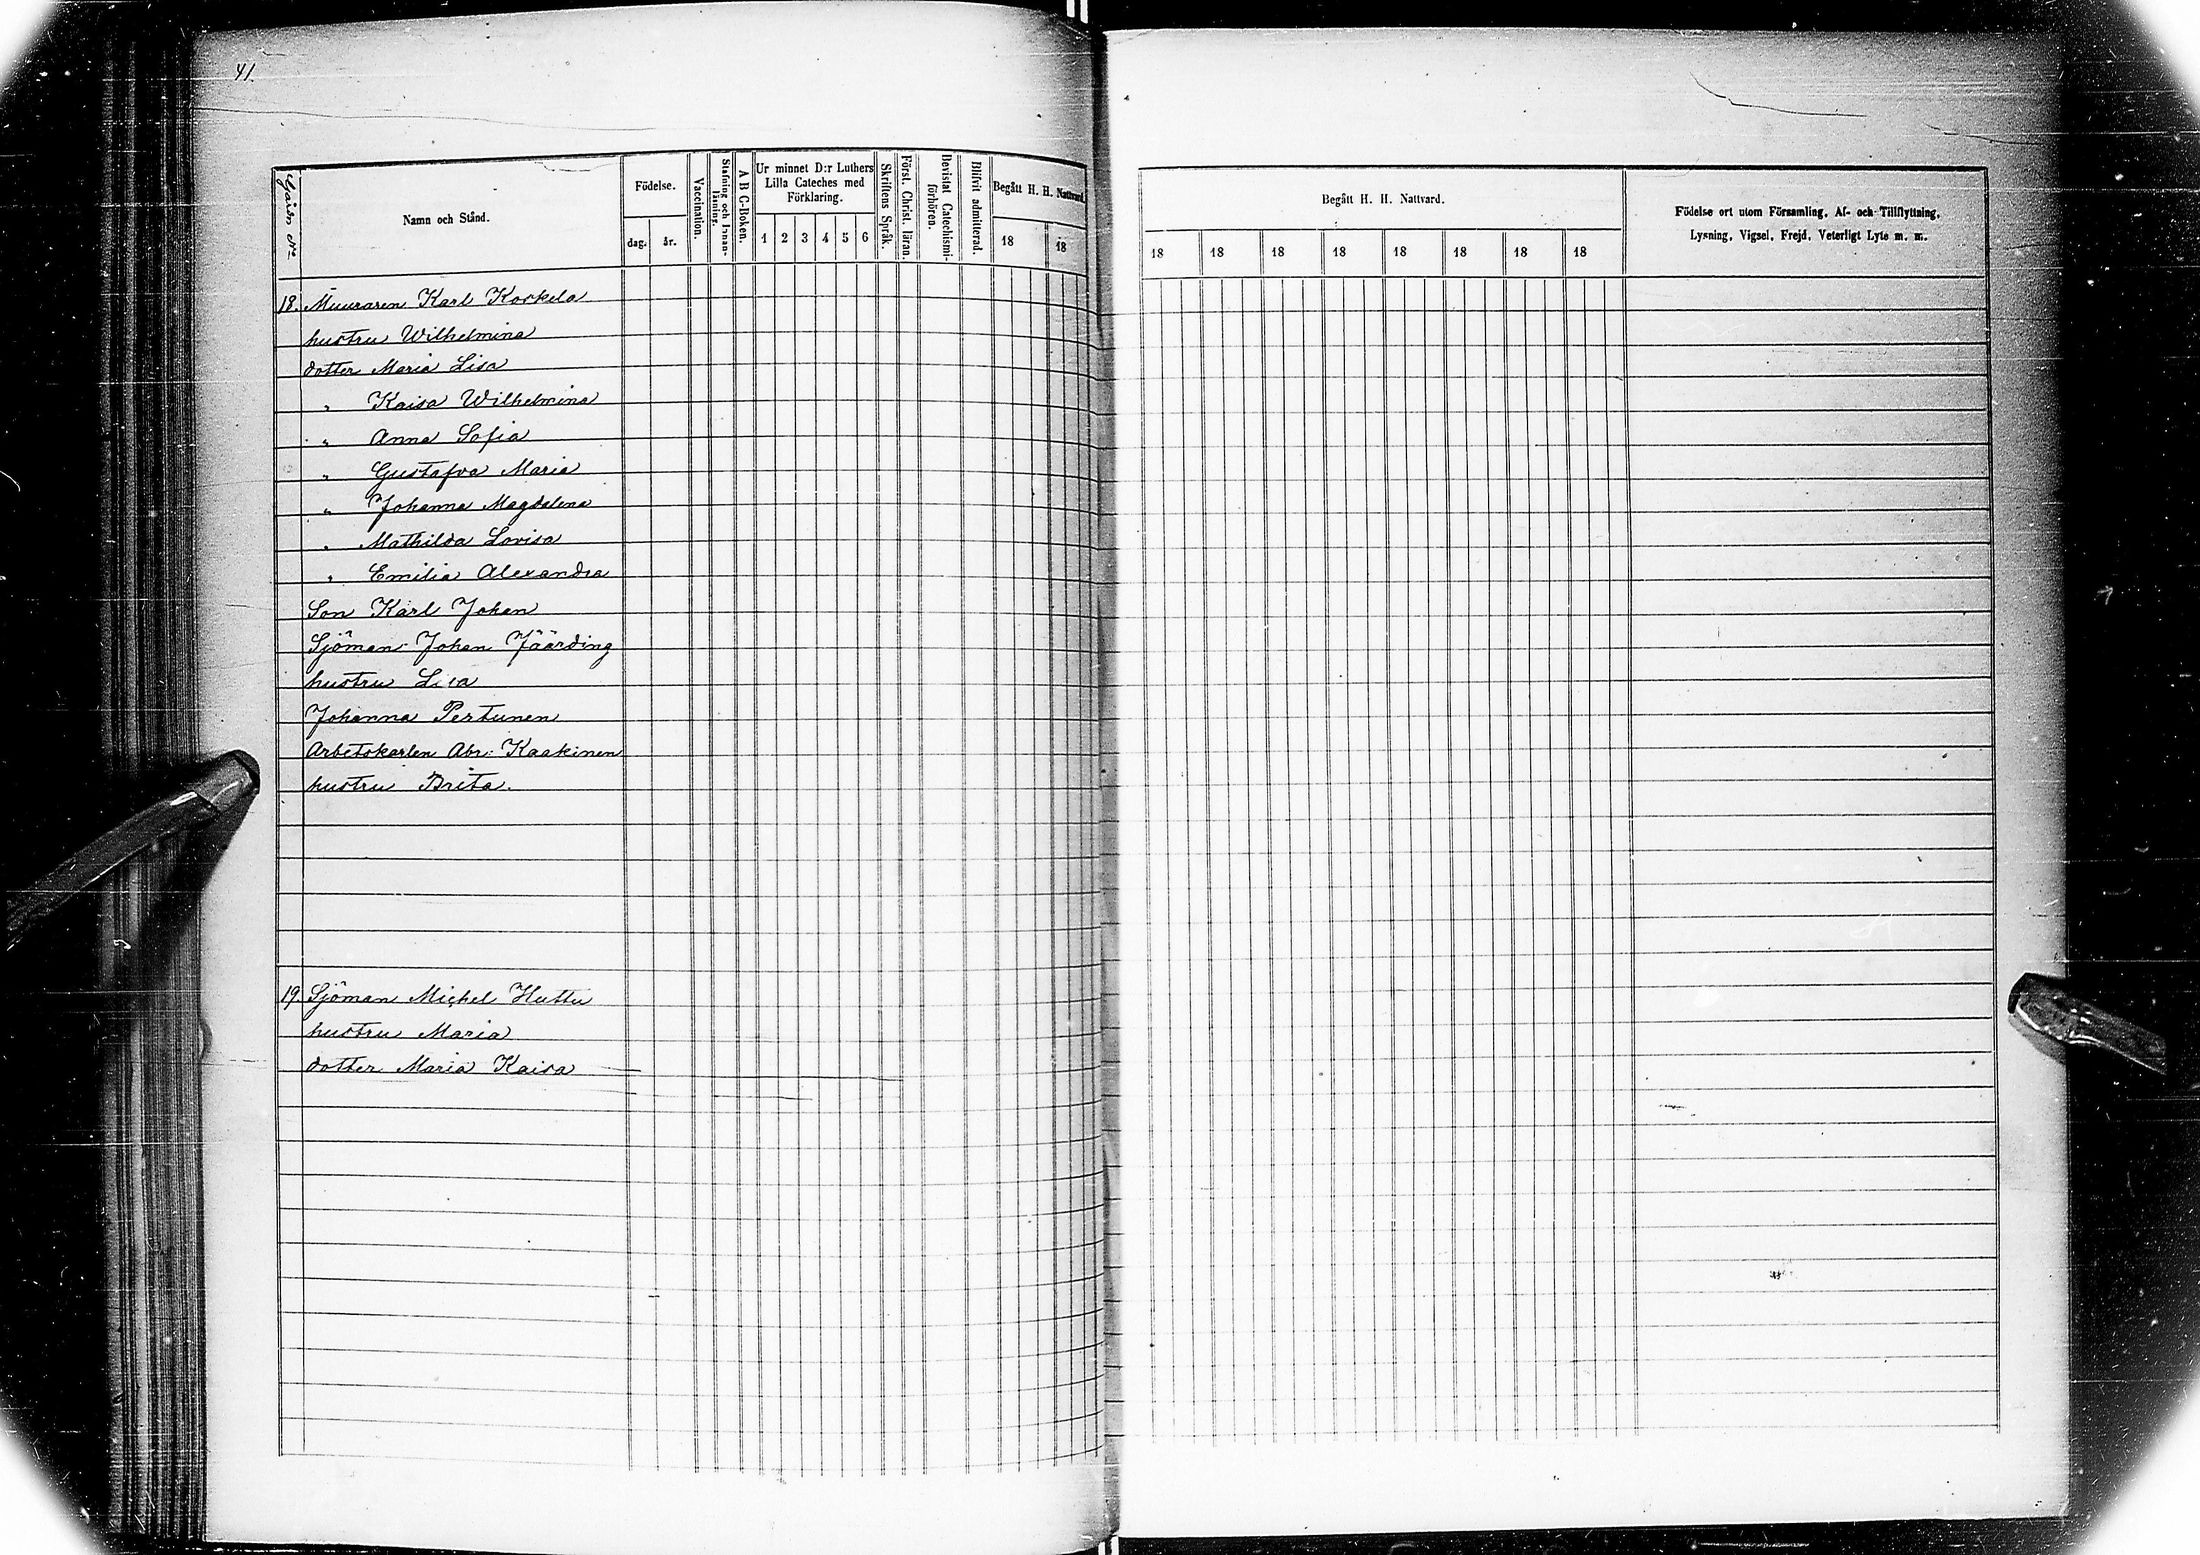 41.
Gårdn No
Namn och Stånd.
Födelse.
dag. år.
Vaccination.
Stafning och Innan-läsning.
A B C-Boken.
Ur minnet D:r Luthers
Lilla Cateches med
Förklaring.
1 2 3 4 5 6
Skriftens Språk.
Först. Christ. läran.
Bevistat Catechismi-förhören.
Blifvit admitterad.
Begått H. H. Nattvard.
18 18
Begått H. H. Nattvard.
18 18 18 18 18 18 18 18
Födelse ort utom Församling, Af- och Tillflyttning,
Lysning, Vigsel, Frejd, Veterligt Lyte m. m.
18. Muuraren Karl Koskela
hustru Wilhelmina
dotter Maria Lisa
" Kaisa Wilhelmina
" Anna Sofia
" Gustafva Maria
" Johanna Magdalena
" Mathilda Lovisa
" Emilia Alexandra
Son Karl Johan
Sjöman Johan Jäärding
hustru Lisa
Johanna Pertunen
Arbetskarlen Abr: Kaakinen
hustru Brita.
19. Sjöman Michel Huttu
hustru Maria
dotter Maria Kaisa